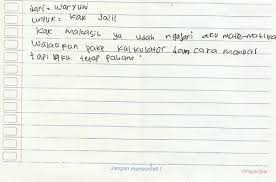 dari : waryuni
untuk : Kak Jalil
Kak makasih ya udah ngajari aku matematika
walaupun pake kalkulator dan cara manual
tapi aku tetap paham.
Jangan menyontek !